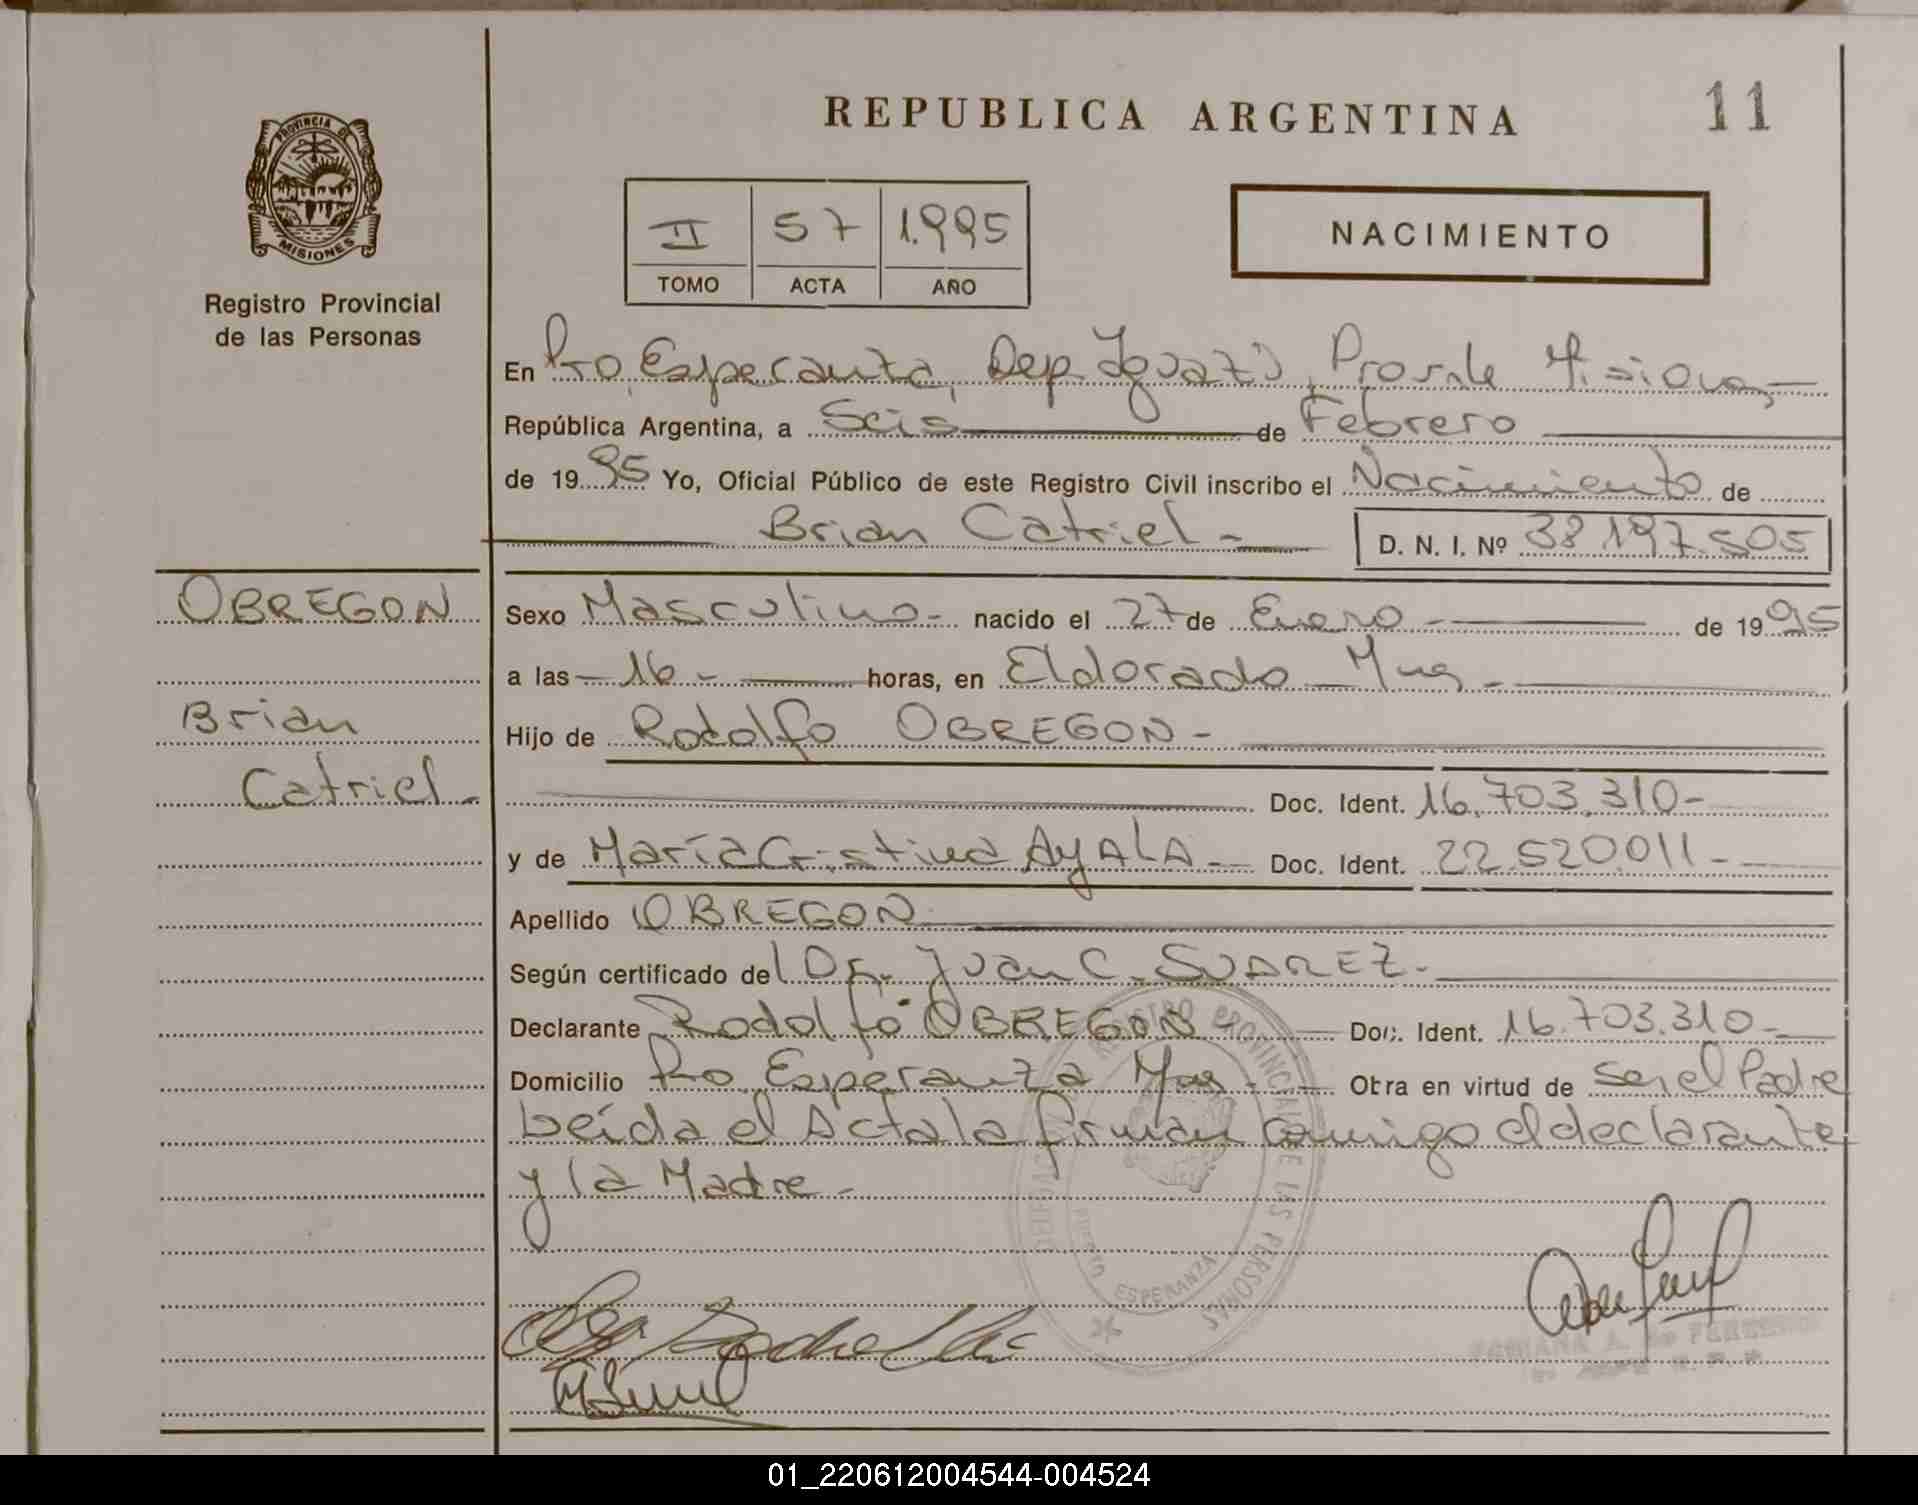 REPUBLICA ARGENTINA
11
PROVINCIA DE
MISIONES
Registro Provincial
de las Personas
II 57 1.995
TOMO ACTA AÑO
NACIMIENTO
En Pto. Esperanza, Dep. Iguazú, Prov. de Misiones,
República Argentina, a Seis de Febrero
de 1995 Yo, Oficial Público de este Registro Civil inscribo el Nacimiento de
Brian Catriel - D. N. I. Nº 38.197.505
OBREGON
Brian
Catriel -
Sexo Masculino - nacido el 27 de Enero - de 1995
a las - 16 - horas, en Eldorado Mnes -
Hijo de Rodolfo OBREGON -
Doc. Ident. 16.703.310 -
y de María Cristina AyALA - Doc. Ident. 22.520.011 -
Apellido OBREGON
Según certificado del Dr. Juan C. SUAREZ -
Declarante Rodolfo OBREGON - Doc. Ident. 16.703.310 -
Domicilio Pto Esperanza Mnes - Obra en virtud de Ser el Padre
Leída el Acta la firman conmigo el declarante
y la Madre -
REGISTRO PROVINCIAL DE LAS PERSONAS
DELEGACION
PUERTO ESPERANZA
01_220612004544-004524